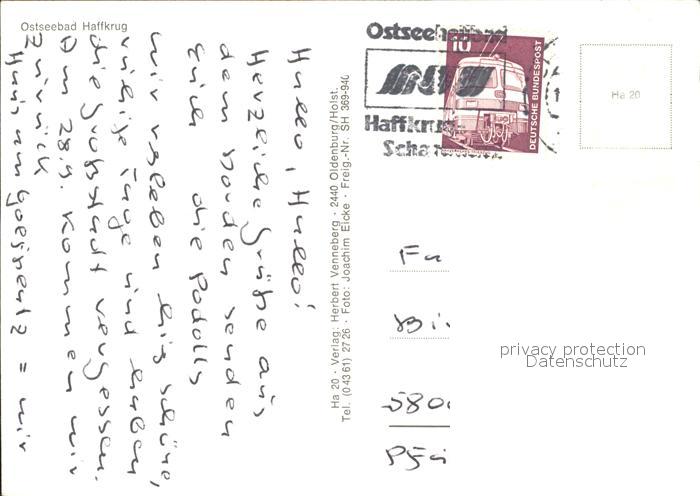 Ostseebad Haffkrug
Hallo, Hallo!
Herzliche Grüße aus
dem Norden senden
Euch die Podolls
wir erleben hier schöne,
ruhige Tage und haben
die Großstadt vergessen.
Am 28.9. kommen wir
zurück
wir
Ha 20 · Verlag: Herbert Venneberg · 2440 Oldenburg/Holst.
Tel. (04361) 2726 · Foto: Joachim Eicke · Freig.-Nr. SH 369-940
Ostseeheilbad
Haffkrug-
Scharbeutz
10
DEUTSCHE BUNDESPOST
Ha 20
Fa
Bi
580
privacy protection
Datenschutz